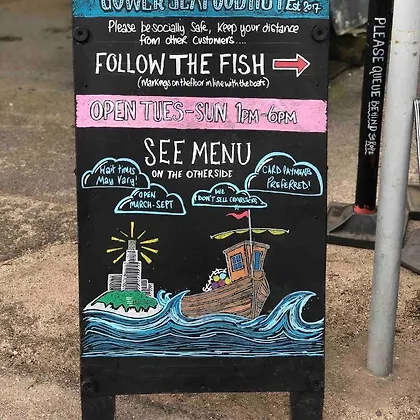 GOWER SEAFOOD HUT Est 2017
Please be socially safe, keep your distance
from other customers....
FOLLOW THE FISH
(Markings on the floor in line with the boats)
OPEN TUES-SUN. 1PM-6PM
SEE MENU
ON THE OTHERSIDE
Wait times
May Vary!
OPEN
MARCH-SEPT
WE
DON'T SELL
CARD PAYMENTS
PREFERRED!
PLEASE QUEUE BEHIND